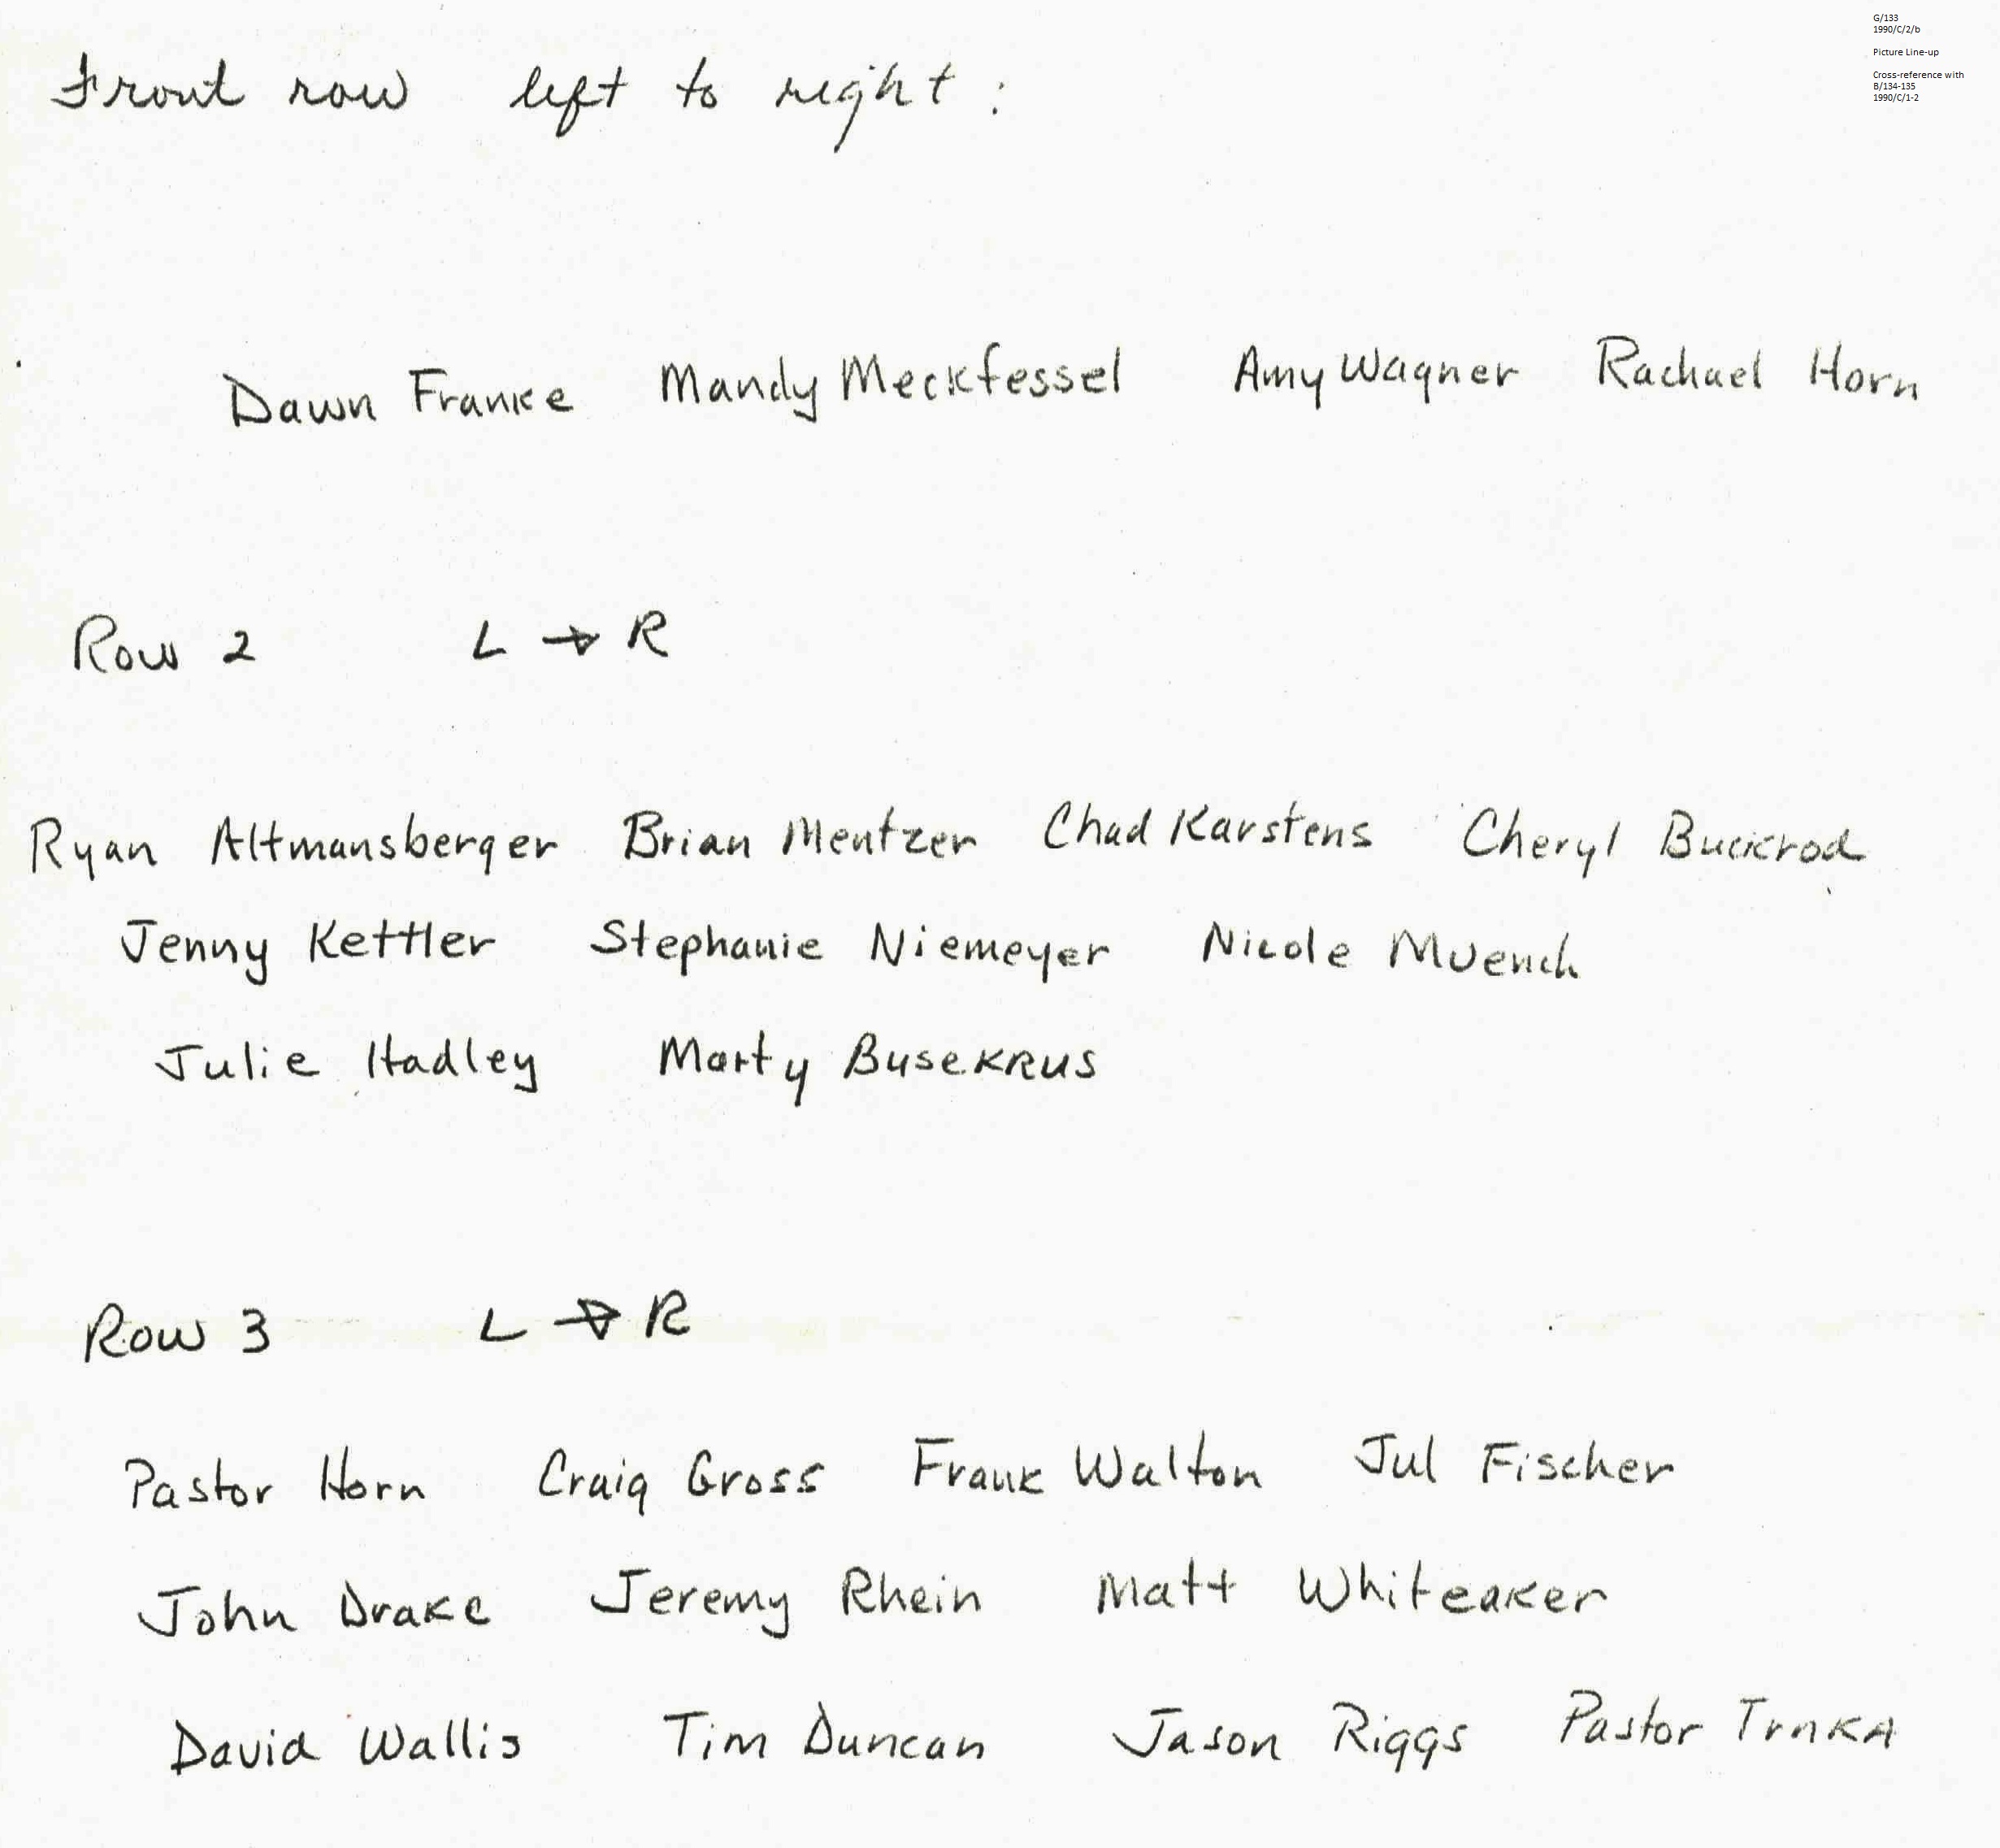 G/133
1990/C/2/b
Picture Line-up
Cross-reference with
B/134-135
1990/C/1-2
Front row left to right :
Dawn Franke Mandy Meckfessel Amy Wagner Rachael Horn
Row 2 L → R
Ryan Altmansberger Brian Mentzer Chad Karstens Cheryl Buckrod
Jenny Kettler Stephanie Niemeyer Nicole Muench
Julie Hadley Marty Busekrus
Row 3 L → R
Pastor Horn Craig Gross Frank Walton Jul Fischer
John Drake Jeremy Rhein Matt Whiteaker
David Wallis Tim Duncan Jason Riggs Pastor Trnka